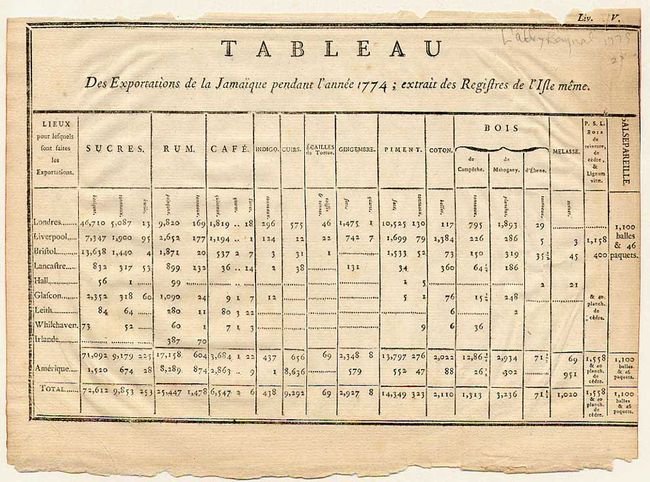 Liv. V.
TABLEAU
Des Exportations de la Jamaïque pendant l'année 1774 ; extrait des Regiſtres de l'Iſle même.
LIEUX pour leſquels ſont faites les Exportations. SUCRES. RUM. CAFÉ. INDIGO. CUIRS. ÉCAILLES de Tortue. GINGEMBRE. PIMENT. COTON. BOIS de Campêche. de Mahogany. d'Ébene. MELASSE. P. S. L. Bois de teinture, de cédre, & Lignum vitæ. SALSEPAREILLE.
Londres 46,710 5,087 13 9,820 169 1,819 .. 18 296 575 46 1,475 1 10,525 130 117 795 1,893 29
Liverpool 7,347 1,900 95 2,652 177 1,194 .. 1 124 12 22 742 7 1,699 79 1,384 226 286 5 3 1,158
Briſtol 13,638 1,440 4 1,871 20 537 2 7 3 31 1 1,533 52 73 150 319 35½ 45 400
1,100 balles & 46 paquets.
Lancaſtre 832 317 53 899 132 36 .. 14 2 38 131 34 360 64½ 186
Hall 56 1 99 1 5 2 21
Glaſcon 2,352 318 60 1,090 24 9 1 7 12 1 5 76 15½ 248
& 20 planch. de cédre.
Leith 84 64 280 11 80 3 22 6 2
Whilkhaven 73 52 60 1 7 1 3 9 6 36
Irlande 387 70
71,092 9,179 225 17,158 604 3,684 1 22 437 656 69 2,348 8 13,797 276 2,022 2,934 71½ 69 1,558 & 20 planch. de cédre. 1,100 balles & 46 paquets.
Amérique 1,520 674 28 8,289 874 2,863 .. 9 1 8,636 579 552 47 88 26 302 951
TOTAL 72,612 9,853 253 25,447 1,478 6,547 2 6 438 9,292 69 2,927 8 14,349 323 2,110 1,313 3,236 71½ 1,020 1,558 & 20 planch. de cédre. 1,100 balles & 46 paquets.